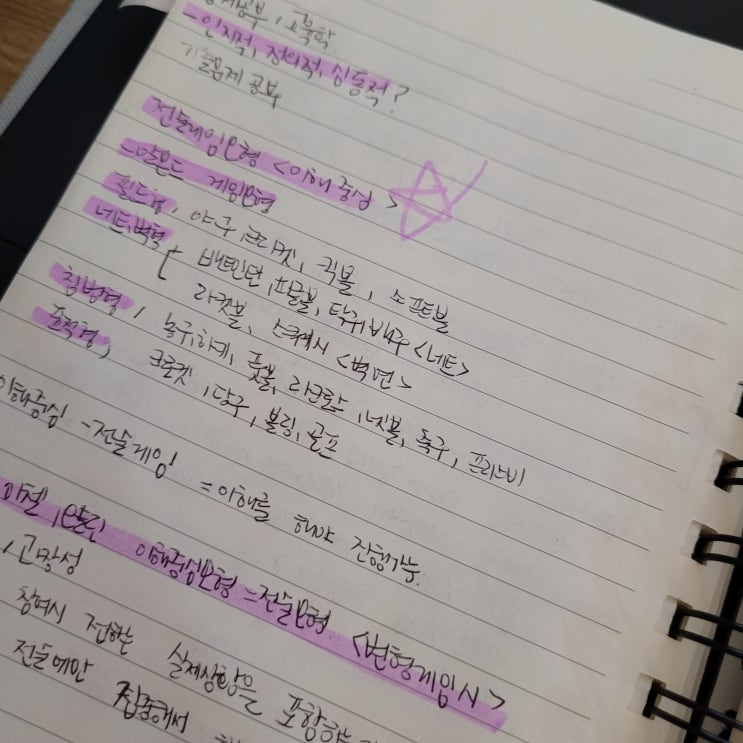 공부, 교육학
- 인지적, 정의적, 심동적?
기출문제 공부
전술게임모형 <이해중심>
- 알몬드 게임모형
필드형, 야구, 크리켓, 킥볼, 소프트볼
네트, 벽형 { 배드민턴, 피클볼, 탁구, 배구 <네트>
라켓볼, 스쿼시 <벽면>
침범형, 농구, 하키, 풋볼, 라크로스, 넷볼, 축구, 프리스비
표적형, 크로켓, 당구, 볼링, 골프
이해중심 - 전술게임
= 이해를 해야 진행가능.
이해중심모형 = 전술모형 <변형게임시>
참여시 접하는 실제상황을 포함하는
전술에만 집중해서